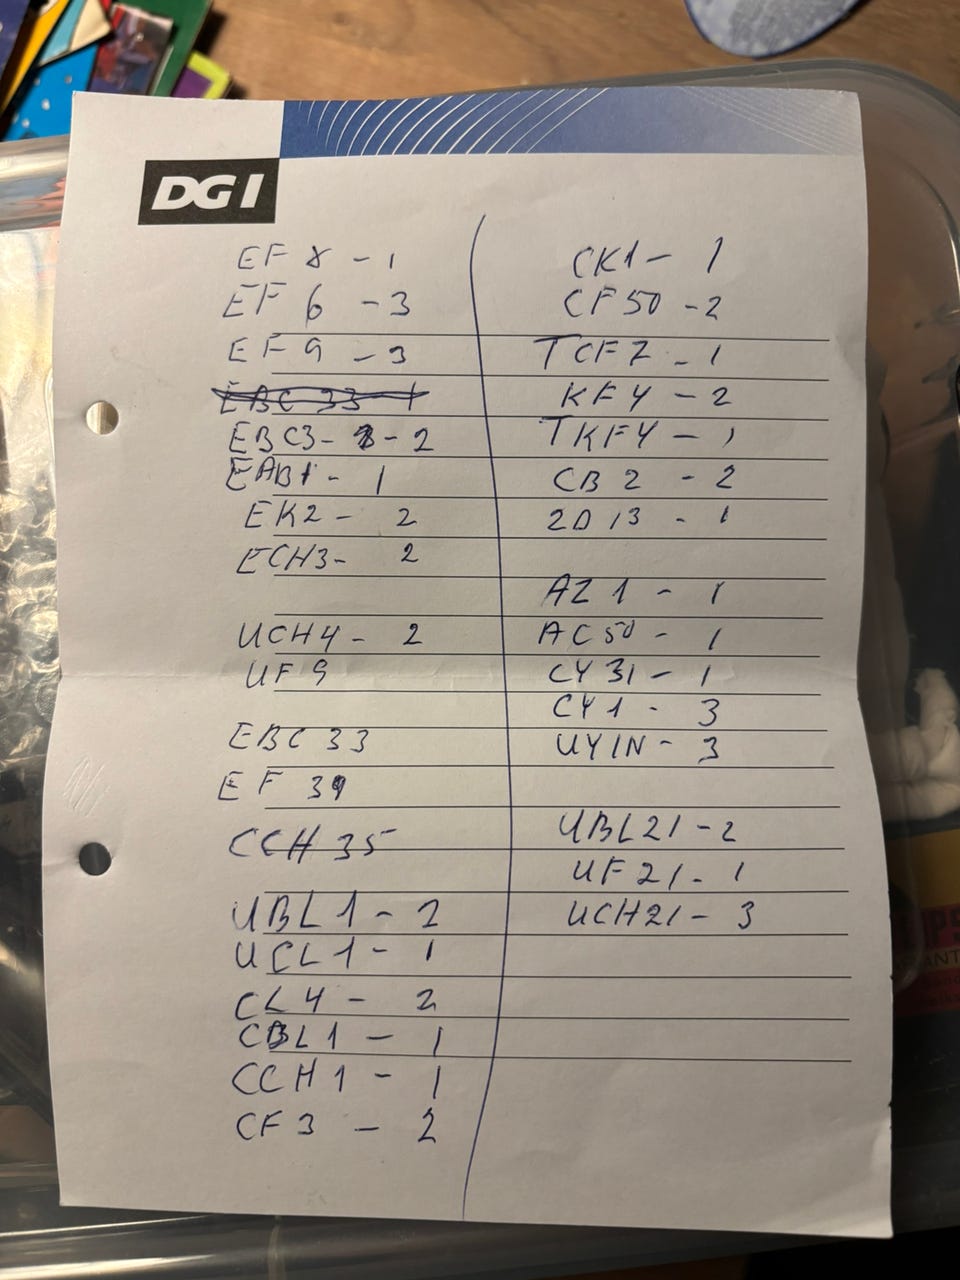 DGI
EF 8 - 1
EF 6 - 3
EF 9 - 3
EBC 33 1
EBC3- - 2
EAB1 - 1
EK2 - 2
ECH3- 2
UCH4 - 2
UF9
EBC 33
EF 39
CCH 35
UBL1 - 2
UCL1 - 1
CL4 - 2
CBL1 - 1
CCH1 - 1
CF3 - 2
CK1 - 1
CF50 - 2
TCF7 - 1
KF4 - 2
TKF4 - 1
CB2 - 2
2D13 - 1
AZ1 - 1
AC50 - 1
CY31 - 1
CY1 - 3
UY1N - 3
UBL21 - 2
UF21 - 1
UCH21 - 3